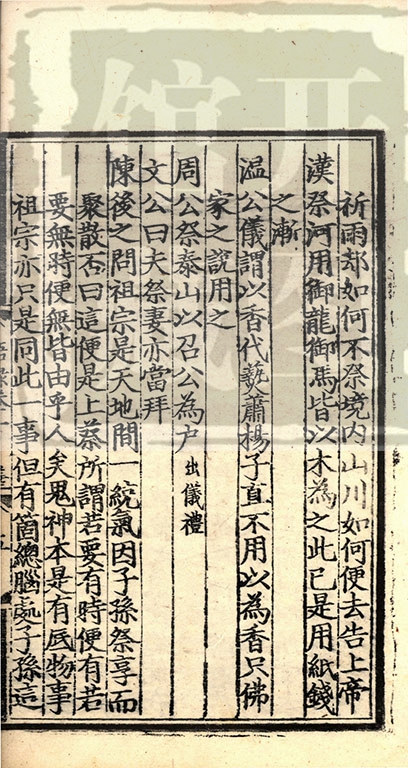 祈雨却如何不祭境內山川如何便去告上帝
漢祭河用御龍御馬皆以木為之此已是用紙錢
之漸
溫公儀謂以香代爇蕭楊子直不用以為香只佛
家之說用之
周公祭泰山以召公為尸出儀禮
文公曰夫祭妻亦當拜
陳後之問祖宗是天地間一統氣因子孫祭享而
聚散否曰這便是上蔡所謂若要有時便有若
要無時便無皆由乎人矣鬼神本是有底物事
祖宗亦只是同此一事但有箇總腦處子孫這